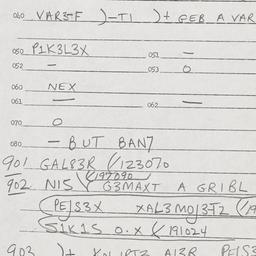 060 VAR3-F )-TI )+ GEB A VAR
050 P1K3L3X 051 —
052 — 053 O
060 NEX
061 — 062 —
070 O
080 — BUT BAN7
901 GALP3R (/123070
902 NIS (/197090 G3MAXT A GRIBL
(PEJS3X XAL3MOJ3-TZ (/19
S1K1S O.X (/191024
903 )+ A13R PEJS3